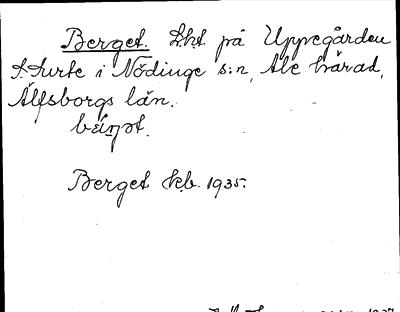 Berget. Lht på Uppegården
S. Surte i Nödinge s:n, Ale härad,
Älfsborgs län.
Berget Kyb. 1935.